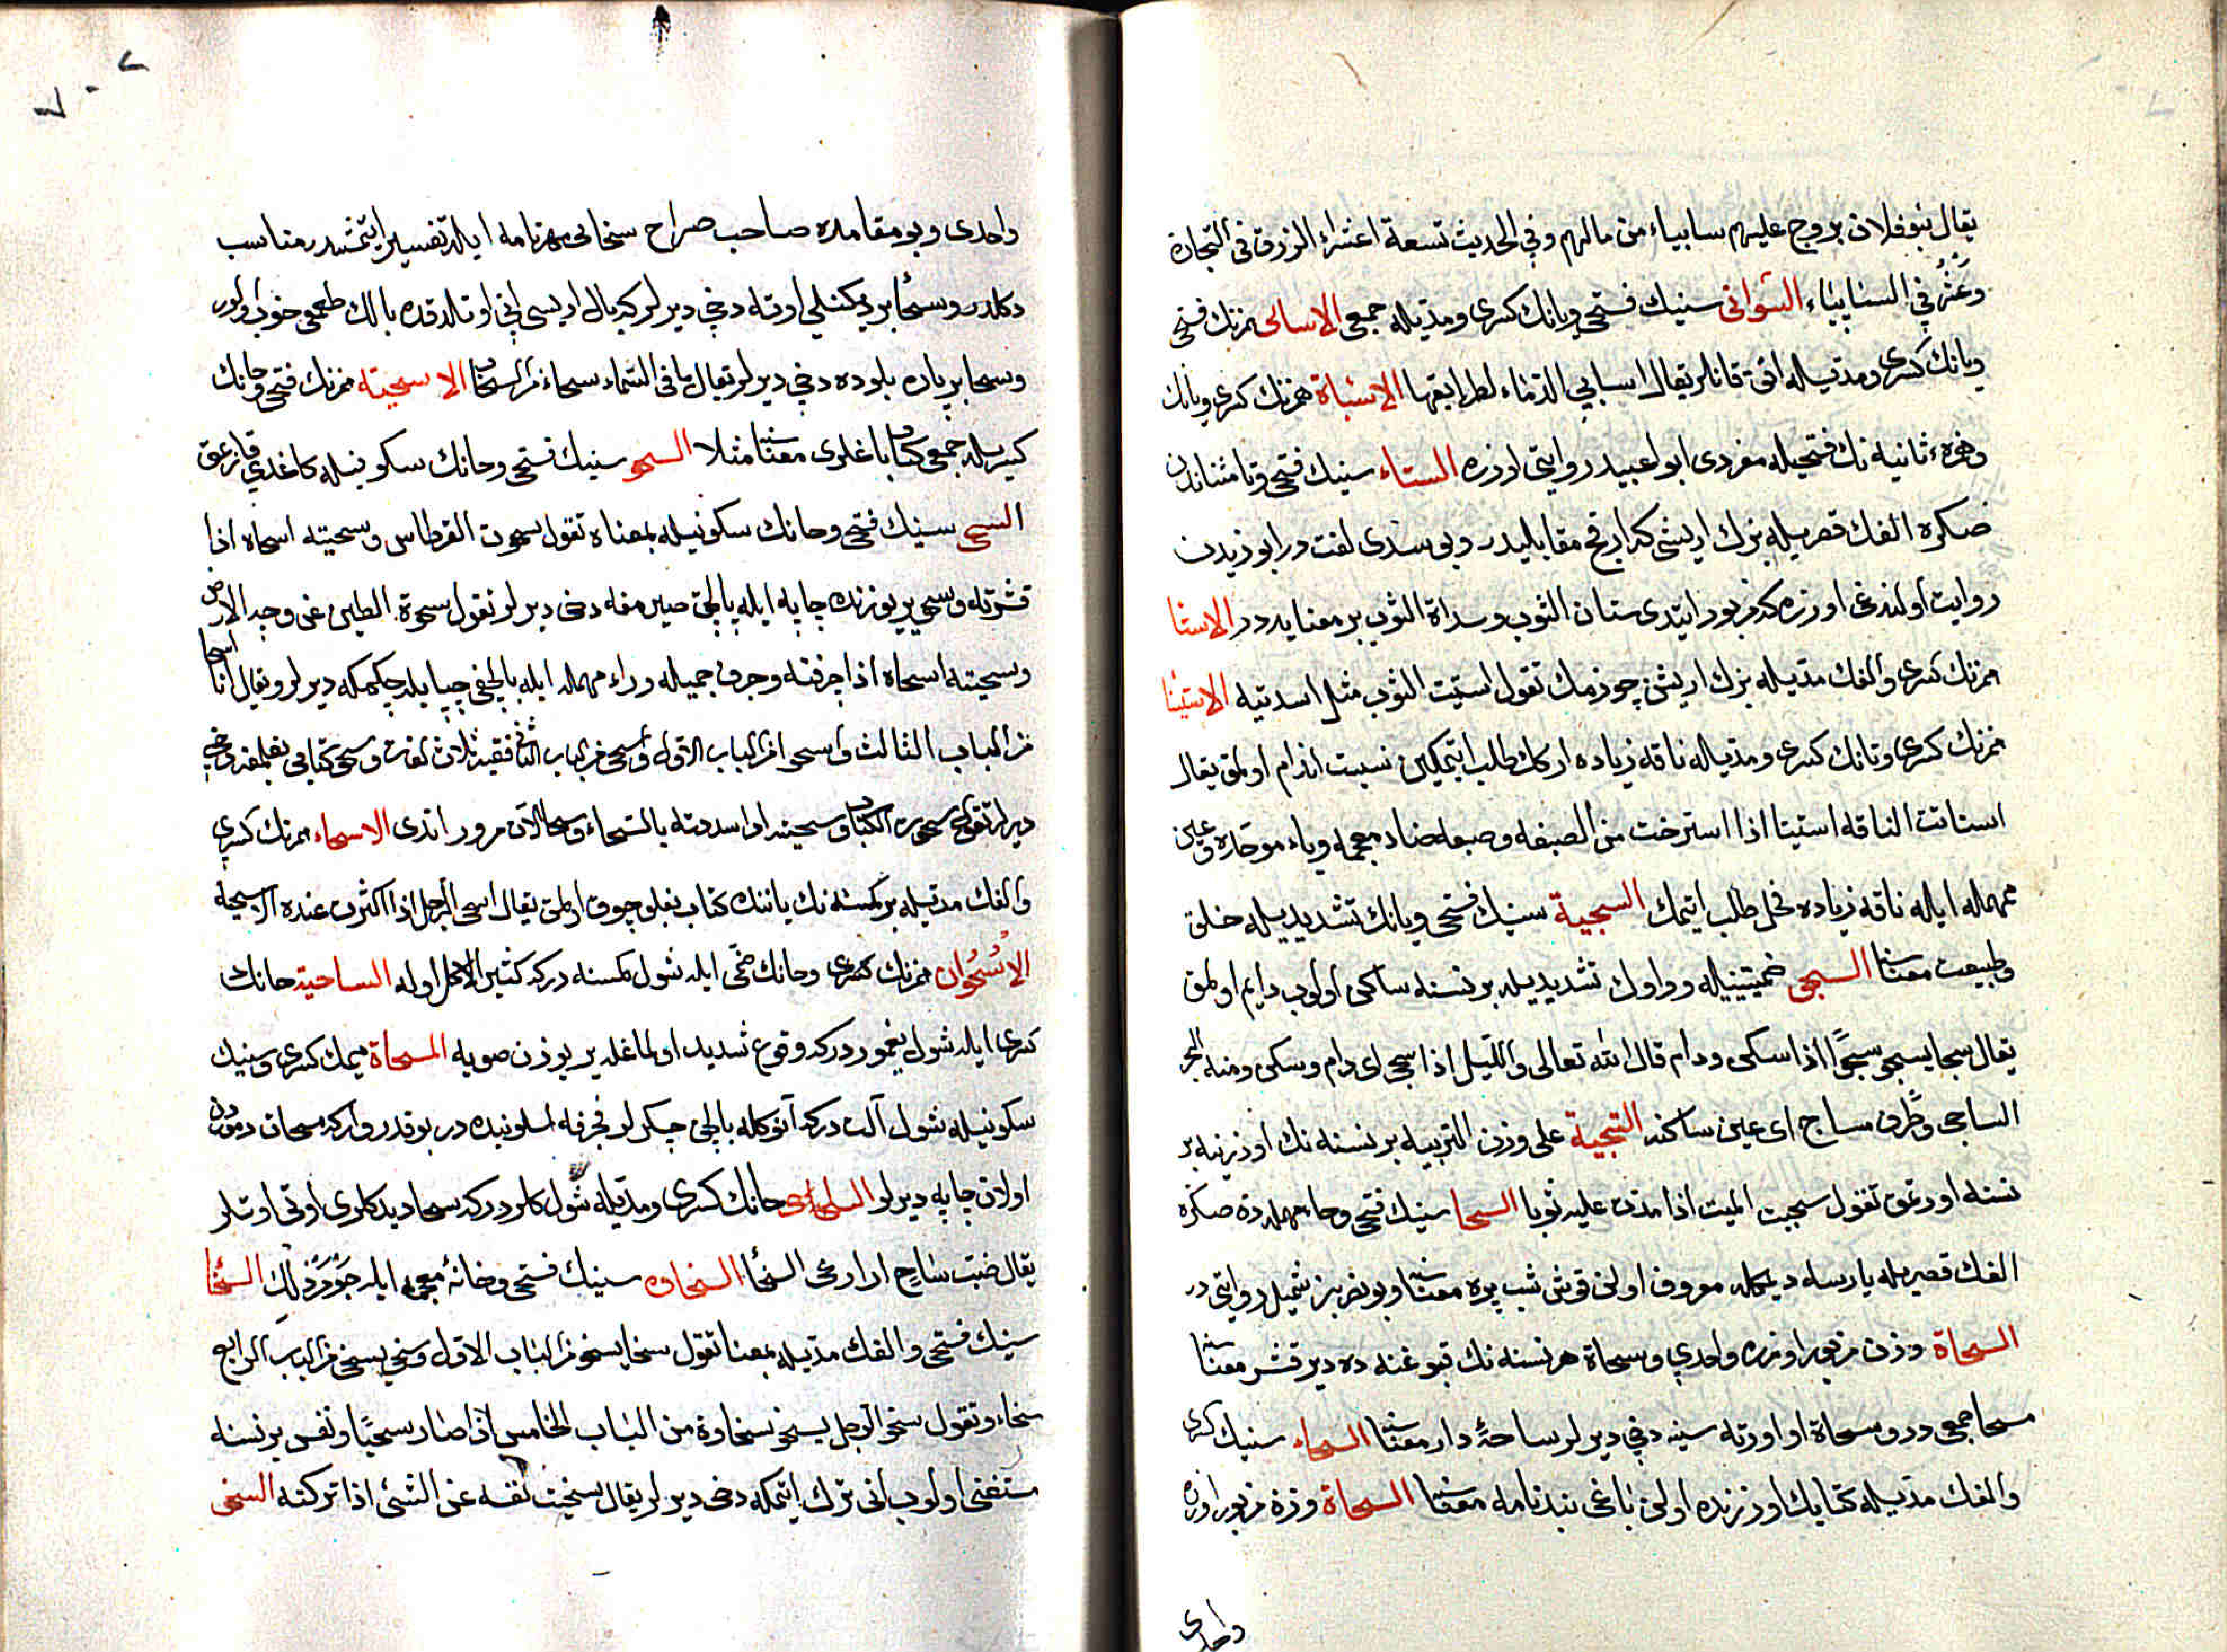 يقال بنو فلان يروح عليهم سابياء من مالهم وفي الحديث تسعة اعشراء الرزق في التجارة
وعشر في السابياء السوابي سينك فتحي ويانك كسري ومديله جمعي الاسابي همزنك فتحي
ويانك كسري ومديله اتى قانلر يقال اسابي الدماء لطرايقها الاسباة همزنك كسري وبانك
وهمزه ثانيه نك فتحيله مفردى ابو عبيد روايتى اوزره الستاء سينك فتحي وتا مثناتدن
صكره الفك قصريله بزك اريشى كه ارقج مقابليدر وبو سدى لغت در ابو زيددن
روايت اولندغى اوزره كه مزبور ايتدى ستان الثوب وسداة الثوب بر معنايه در الاستا
همزنك كسرى والفك مديله بزك اريشن چوزمك تقول استيت الثوب مثل اسديته الاستيتا
همزنك كسرى وتانك كسرى ومديله ناقه زياده اركك طلب ايتمكين نسبت اندام اولمق يقال
استاتت الناقه استيتا اذا استرخت من الضبعه وضبعه ضاد معجمه وباء موحده وعين
مهمله ايله ناقه زياده فحل طلب ايتمك السجية سينك فتحي ويانك تشديديله خلق
وطبيعت معناسنا السجو ضمتينيله وواوك تشديديله بر نسنه ساكن اولوب دايم اولمق
يقال سجا يسجو سجوا اذا سكن ودام قال الله تعالى والليل اذا سجى اى دام وسكن ومنه البحر
الساجي وطرف ساج اى عين ساكنه التسجية على وزن التربيه بر نسنه نك اوزرينه بر
نسنه اورتمق تقول سجيت الميت اذا مددت عليه ثوبا السحا سينك فتحي وحا مهمله دن صكره
الفك قصريله يارسه ديمكله معروف اولن قوش شب پره معناسنا وبو نضر بن شميل روايتى در
السحاة وزن مزبور اوزره واحدى وسحاة هر نسنه نك قبوغنه ده دير قشر معناسنا
سحا جمعى در وسحاة او اورته سينه دخي ديرلر ساحة دار معناسنا السحاء سينك كسرى
والفك مديله كتابك اوزرنده اولن باغى بندنامه معناسنا السحاة وزن مزبور اوزره
واحدى
واحدى وبو مقامده صاحب صراح سخائى مهرنامه ايله تفسير ايتمشدر مناسب
دكلدر وسحا بر ديكنلي اوته دخي ديرلر كه بال اريسى انى اوتلدقده بالك طعمي خوب اولور
وسحا بر پاره بلوده دخي ديرلر يقال ما في السماء سحاء من السحاب الاسحية همزنك فتحي وحانك
كسريله جمعى كتاب باغلرى معناسنا مثلا السحو سينك فتحي وحانك سكونيله كاغدي قازيمق
السحي سينك فتحي وحانك سكونيله بمعناه تقول سحوت القرطاس وسحيته اسحاه اذا
قشرته وسحي ير يوزندن چاپه ايله بالچق صيرمغه دخى ديرلر تقول سحوت الطين عن وجه الارض
وسحيته اسحاه اذا جرفته وجرف جميله وراء مهمله ايله بالچغى چپا يله چكمكه ديرلر ويقال انا اسحا
من الباب الثالث واسحو من الباب الاول واسحى من الباب الثاني ففيه ثلاث لغات وسحى كتابى بغلمغه دخى
ديرلر تقول سحوت الكتاب وسحيته اذا سددته بالسحاء وسحا الآن مرور اتدى الاسحاء همزنك كسرى
والفك مديله بر كمسنه نك ياننك كتاب بغلو چوق اولمق يقال اسحى الرجل اذا اكثرت عنده الاسحية
الاسحوان همزنك كسرى وحانك ضمى ايله شول كمسنه دركه كثير الاكل اوله الساحية حانك
كسرى ايله شول يغموردركه وقوع شديد اولماغله ير يوزن صويه المسحاة ميمك كسرى وسينك
سكونيله شول آلت دركه آنوكله بالچق چكرلر مجرفه اسلوبنده در بو قدر وار كه مسحات دموردن
اولان چاپه ديرلر حانك كسرى ومديله شول كلر دركه سحا ديدكلرى اوتى اوتلر
يقال ضب ساح اذا رعى السحا السخاوه سينك فتحي وخائه معجمه ايله جومردلك السخا
سينك فتحي والفك مديله بمعنا تقول سخا يسخو من الباب الاول وسخي يسخى من الباب الرابع
سخاء وتقول سخو الرجل يسخو سخاوة من الباب الخامس اذا صار سخيا ونفس بر نسنه
مستغنى اولوب انى ترك ايتمكه دخى ديرلر يقال سخيت نفسه عن الشئ اذا تركته السخى